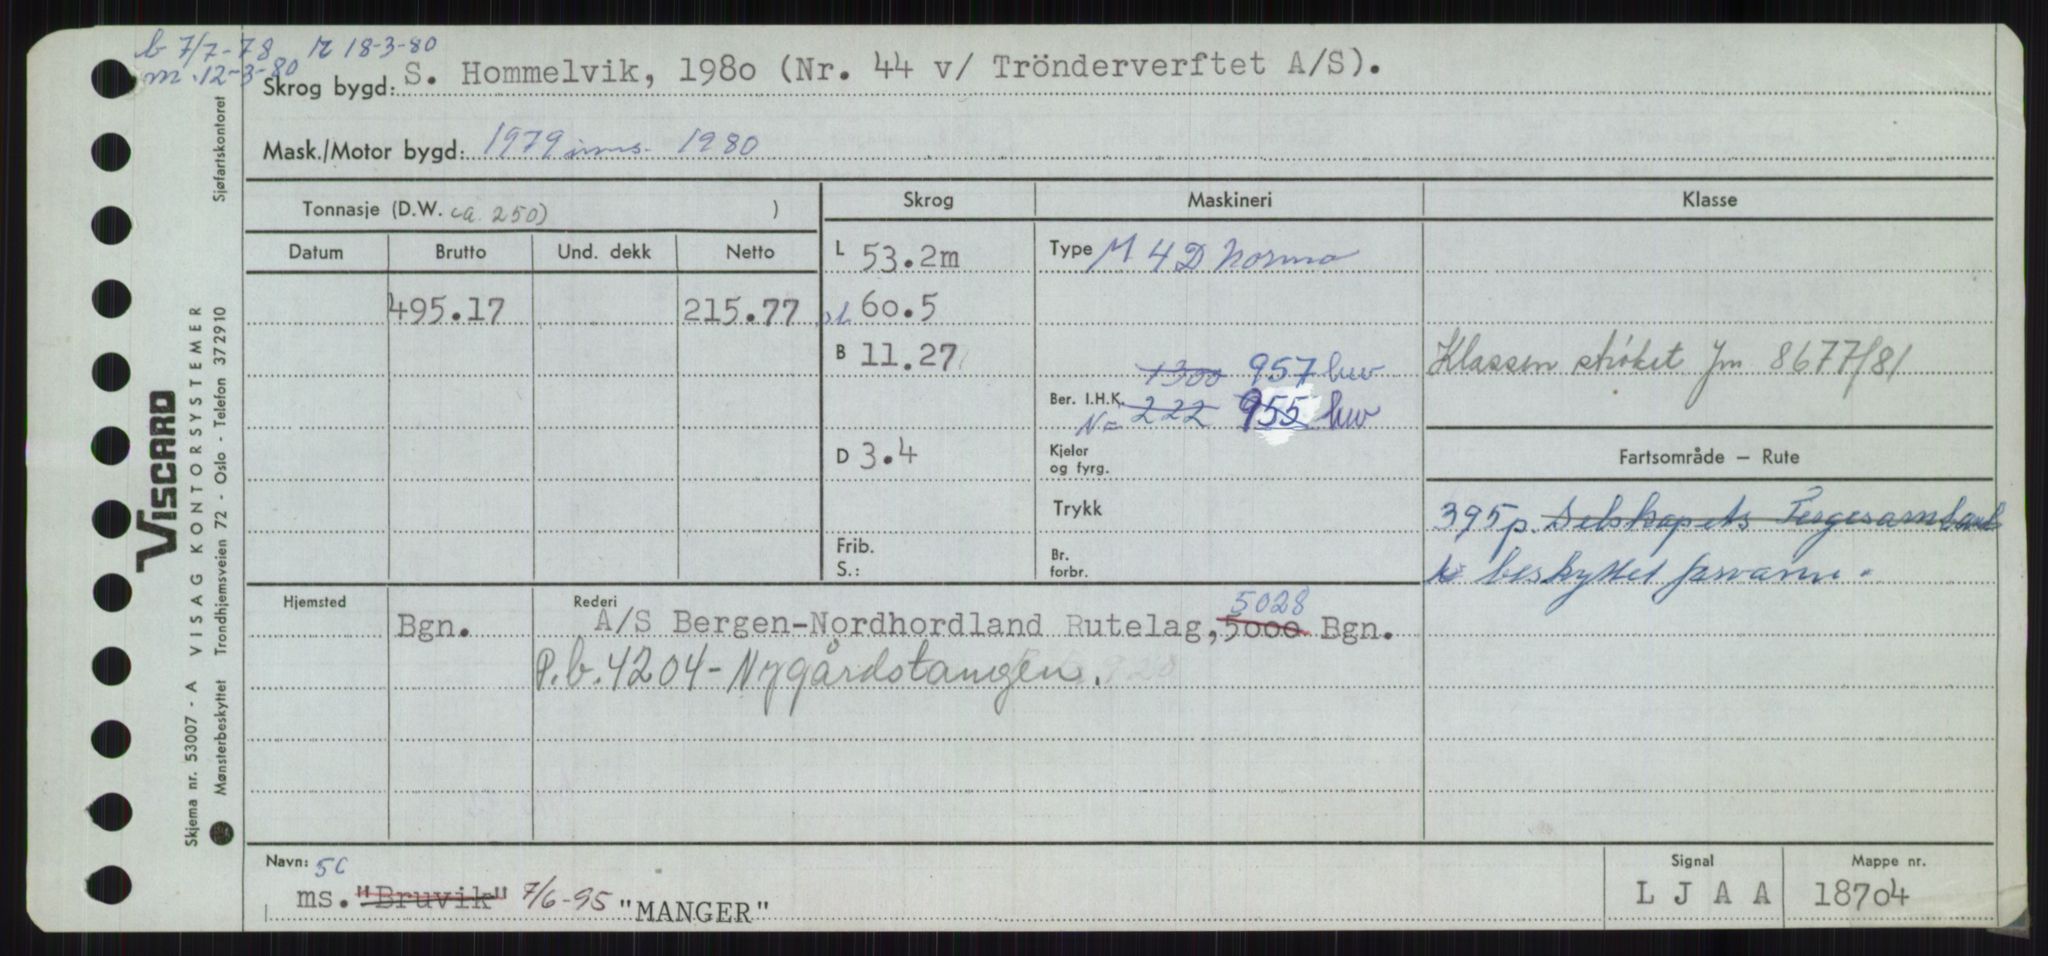 b 7/7-78 r 18-3-80
m. 12-3-80
Skrog bygd: S. Hommelvik, 1980 (Nr. 44 v/ Trönderverftet A/S).
Mask./Motor bygd: 1979 inns. 1980
Sjøfartskontoret
Tonnasje (D.W. ca. 250) )
Skrog Maskineri Klasse
Datum Brutto Und. dekk Netto
L 53.2m Type M 4 D Normo
495.17 215.77 st 60.5
B 11.27 1300 957 huv Klassen strøket Jm 8677/81
Ber. I.H.K. N= 222 955 huv
D 3.4 Kjeler
og fyrg.
Fartsområde – Rute
Trykk 395 p. Selskapets Fergesamband
Frib.
S.:
Br.
forbr.
i beskyttet farvann.
Hjemsted Rederi 5028
Bgn. A/S Bergen-Nordhordland Rutelag, 5000 Bgn.
P.b. 4204 - Nygårdstangen.
Navn: 5C Signal Mappe nr.
ms. "Bruvik" 7/6-95 "MANGER" L J A A 18704
VISCARD
VISAG KONTORSYSTEMER
Skjema nr. 53007 - A
Mønsterbeskyttet Trondhjemsveien 72 - Oslo - Telefon 372910